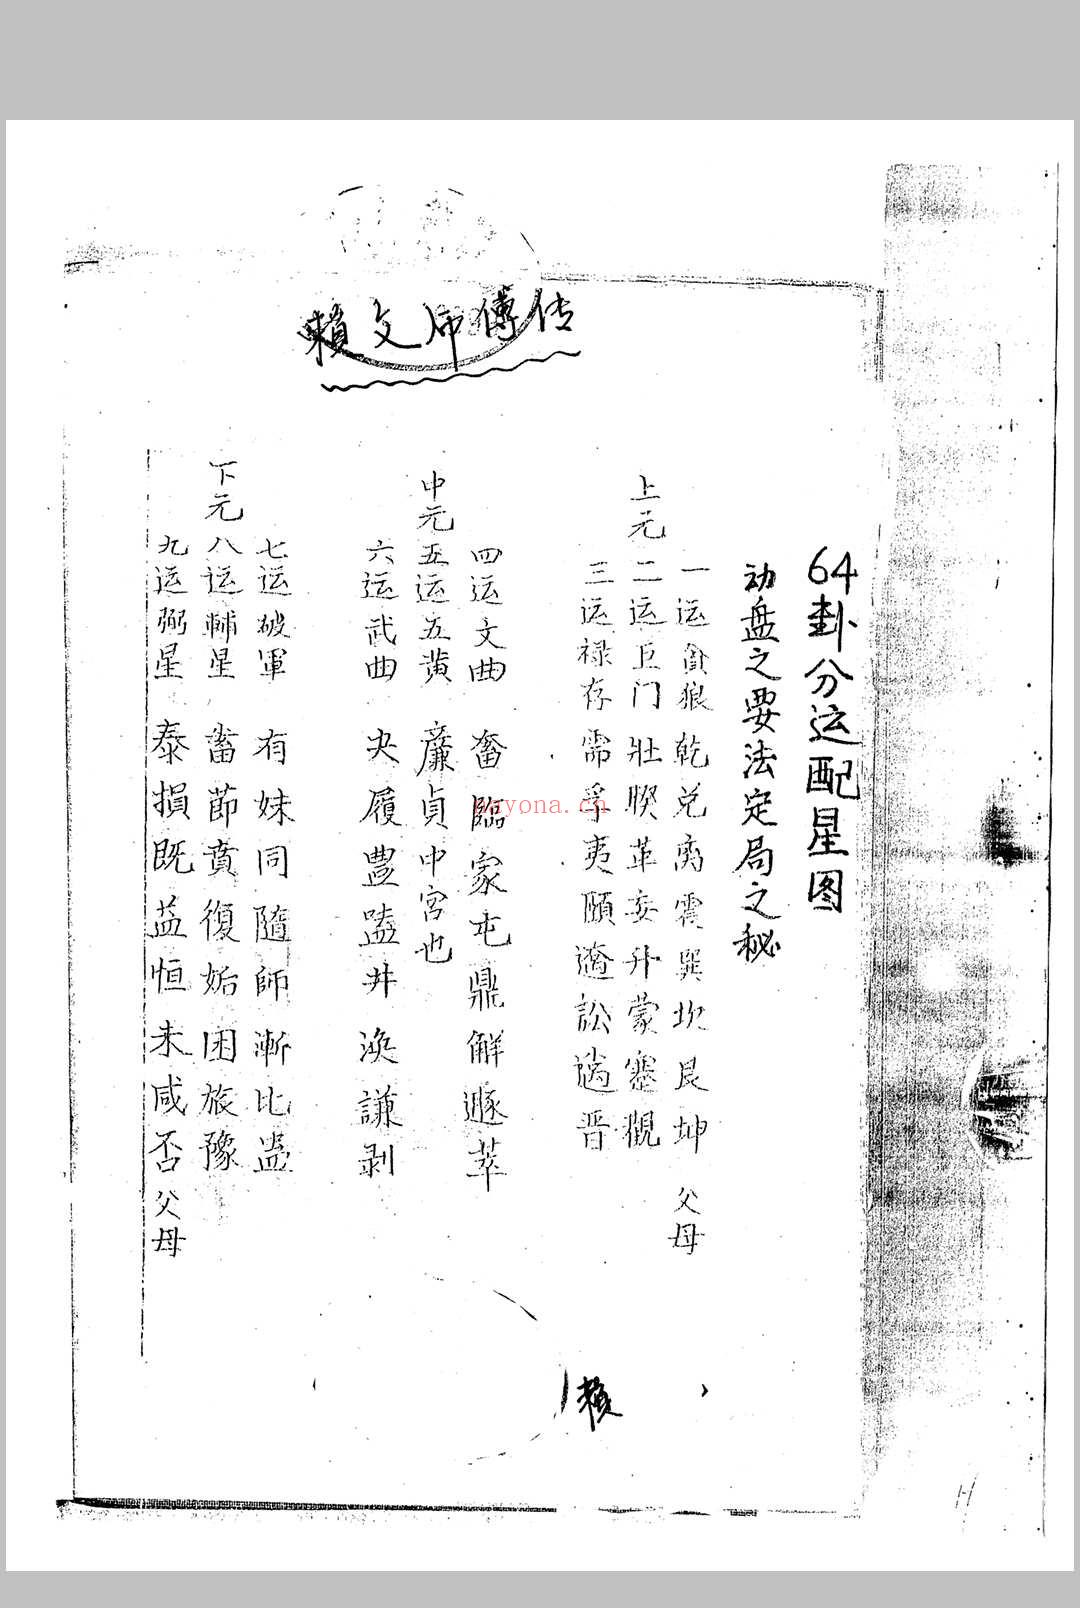 賴文师傅传
64卦分运配星图
动盘之要法定局之秘
一运貪狼 乾兑离震巽坎艮坤 父母
上元二运巨门 壯睽革妄升蒙蹇觀
三运禄存 需孚夷頤邅訟過晋
四运文曲 畜臨家屯鼎解遯萃
中元五运五黄 廉貞中宫也
六运武曲 夬履豊嗑井渙謙剥
七运破軍 有妹同隨師漸比蛊
下元八运輔星 畜節賁復姤困旅豫
九运弼星 泰損既益恒未咸否父母
nayona.cn
賴